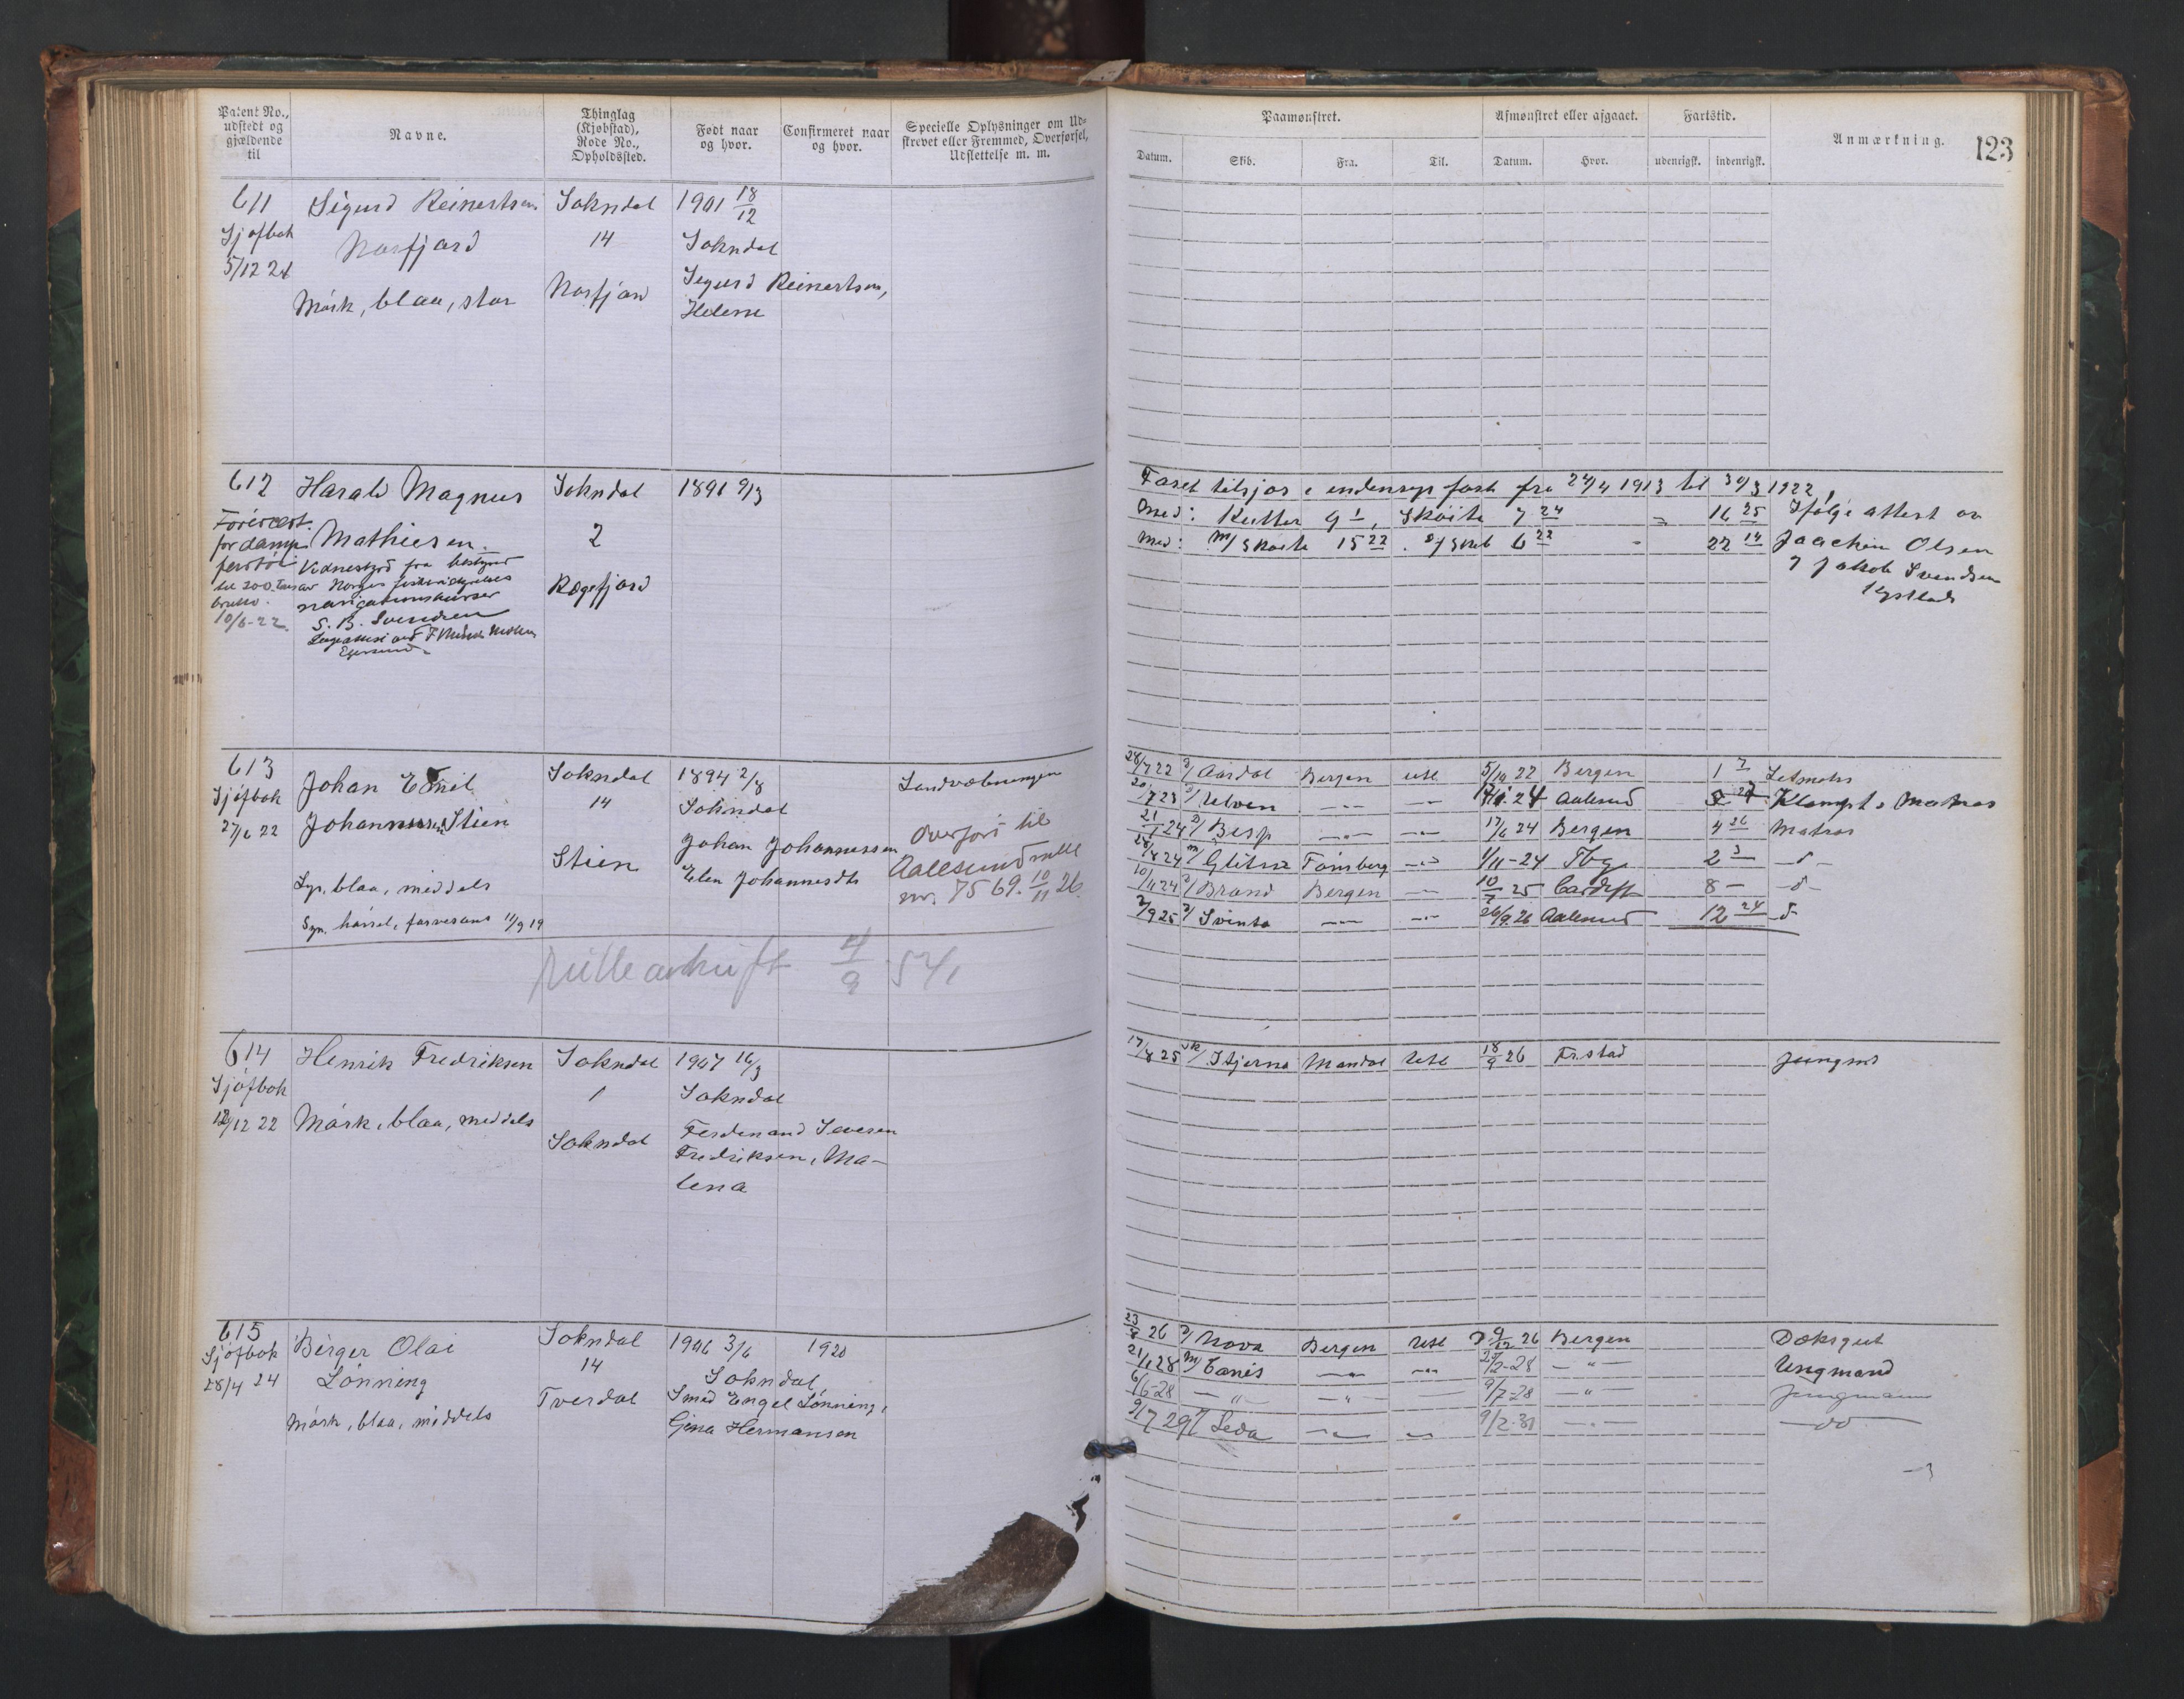 Patent No., udstedt og gjældende til
Navne.
Thinglag (Kjøbstad), Rode No., Opholdssted.
Født naar og hvor.
Confirmeret naar og hvor.
Specielle Oplysninger om Udskrevet eller Fremmed, Overførsel, Udslettelse m. m.
Paamønstret.
Afmønstret eller afgaaet.
Fartstid.
Anmærkning.
123
Datum.
Skib.
Fra.
Til.
Datum.
Hvor.
udenrigsk.
indenrigsk.
611
Sjøfbok
5/12 24
Sigurd Reinertsen
Nosfjord
Mörk, blaa, stor
Sokndal
14
Nosfjord
1901 18/12
Sokndal
Sigurd Reinertsen,
Helene
612
for damp
10/6-22.
Harald Magnus
Mathiesen.
S. B. Svendsen
Sokndal
2
Rægefjord
1891 9/3
24/4 1913 til 30/3 1922,
Med: Kutter 9 1, Skøite 7 24 16 25
Med: m/Skøite 15 22. s/Skib 6 22 22 14
Ifølge attest av
Joachim Olsen
Jakob Svendsen
613
Sjøfbok
27/6 22
Johan Emil
Johannessen Stien
Lys, blaa, middels
Syn, hørsel, farvesans 11/9 19
Sokndal
14
Stien
1894 2/8
Sokndal
Johan Johannessen
Elen Johannesdtr
Landvæbningen
Overført til
Aalesund rulle
nr. 7569. 10/11 26
rulleavskrift 4/9 54,
28/7 22 s/ Aardal Bergen utl 5/10 22 Bergen 1 7 Letmatros
s/ Ulven Aalesund Matros
21/1 24 s/ Besp 17/6 24 Bergen 4 26 Matros
28/8 24 m/ Glitne Tønsberg 1/11-24 Tbg 2 3 -d-
10/11 24 s/ Brand Bergen 10/7 25 Cardiff 8 - -d-
2/9 25 s/ Svinta 26/9.26 Aalesund 12 24 d-
614
Sjøfbok
12/12 22
Henrik Fredriksen
Mörk, blaa, middels
Sokndal
1
Sokndal
1907 16/3
Sokndal
Ferdinand Severen
Fredriksen, Ma-
lena
17/8 25 sk/ Stjerna Mandal Utl 18/9 26 Fr.stad Jungmd
615
Sjøfbok
28/4 24
Birger Olai
Lønning
Mörk, blaa, middels
Sokndal
14
Tverdal
1906 3/6
1920
Sokndal
Smed Engel Lønning,
Gina Hermansen
23/8 26 s/ Nova Bergen Utl 9/12 26 Bergen Dæksgut
21/1 28 m/ Canis 25/2-28 - " - Ungmand
6/6-28 - " - - " - 9/7-28 - " - Jungmann
9/7 29 s/ Leda 9/2-31 - " - do